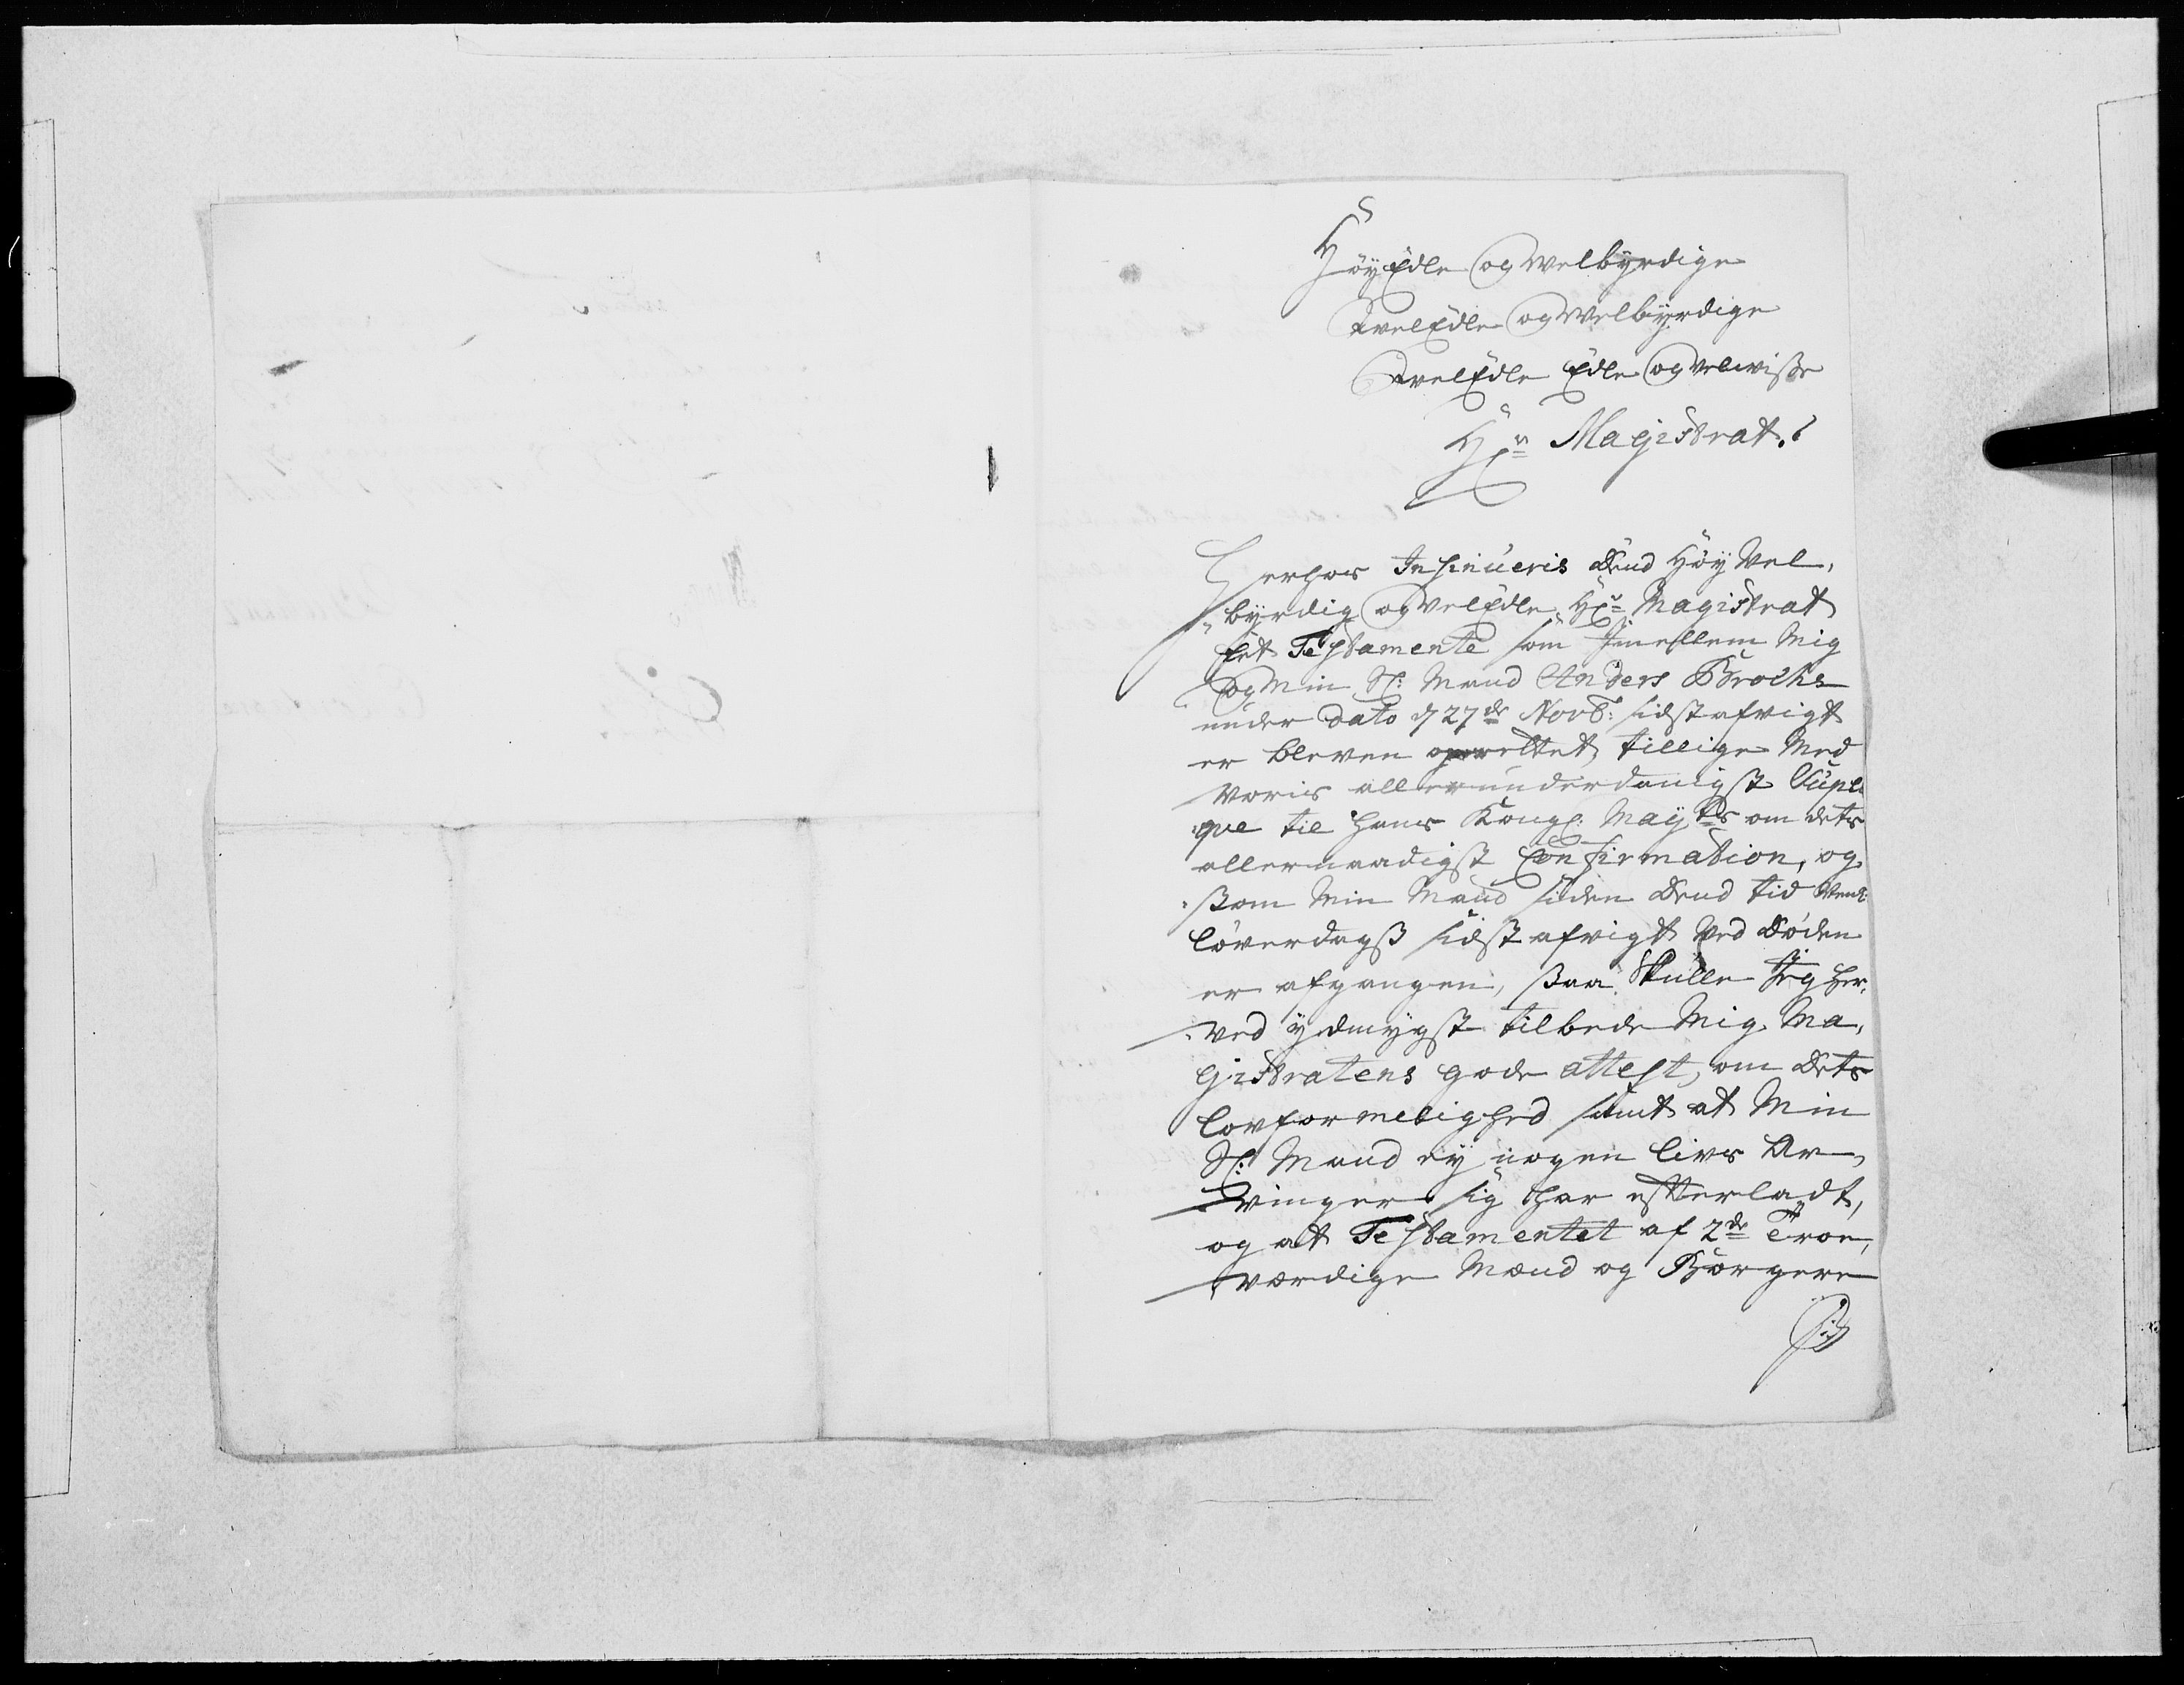 HöyEdle og Welbyrdige
WelEdle og Welbyrdige
WelEdle Edle og velwisse
Hr. Magistrat!
Herhos Insinueris Dend Höy Vel,
byrdig og VelEdle Hr. Magistrat
Eet Testamente som Imellem Mig
og Min Sl: Mand Anders Brochs
under Dato d 27de Novb: sidst afvigt
er bleven oprettet, tillige Med
Voris allerunderdanigst Supli
que til Hans Kongl: Mayts om dets
allernaadigst Confirmation, og
som Min Mand siden Dend tid
Löverdags sidst afvigt ved Döden
er afgangen, saa Skulle Jeg her,
ved ydmygst tilbede Mig Ma,
gistratens gode attest, om Dets
lovformelighed samt at Min
Sl: Mand ey nogen livs Ar,
vinger sig har efterladt,
og at Testamentet af 2de Troe,
værdige Mænd og Borgere